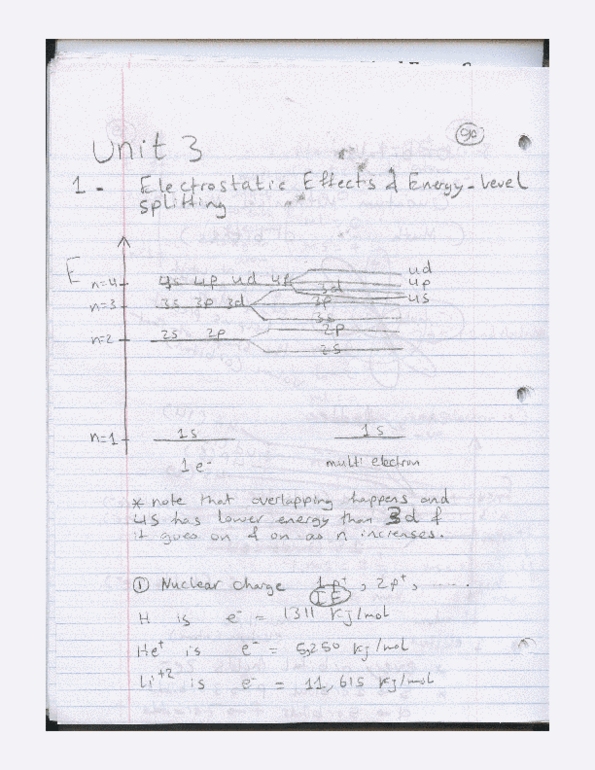 90
Unit 3
1 - Electrostatic Effects & Energy-level
splitting
E
n=4 4s 4p 4d 4f 4d
4p
4s
3d
n=3 3s 3p 3d 3p
3s
n=2 2s 2p 2p
2s
n=1 1s 1s
1 e⁻ multi electron
* note that overlapping happens and
4s has lower energy than 3d &
it goes on & on as n increases.
① Nuclear charge 1p⁺, 2p⁺, .....
IE
H 1s e⁻ = 1311 kj/mol
He⁺ 1s e⁻ = 5250 kj/mol
Li⁺² 1s e⁻ = 11,615 kj/mol